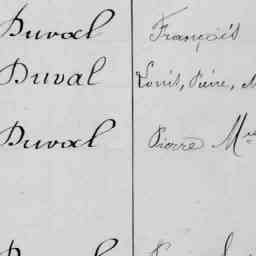 Duval François
Duval Louis, Pierre, M
Duval Pierre Mie
Duval